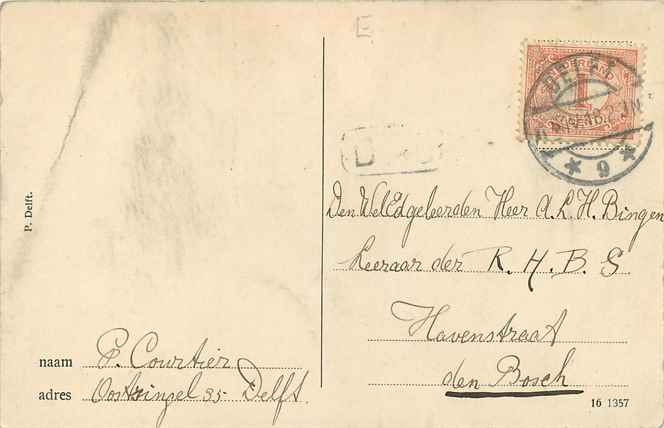 P. Delft.
naam P. Courtier
adres Oostsingel 35 Delft.
NEDERLAND
1
DELFT
* 9 *
Den WelEdgeleerden Heer A. L. H. Bingen
Leeraar der R. H. B. S.
Havenstraat
den Bosch
16 1357